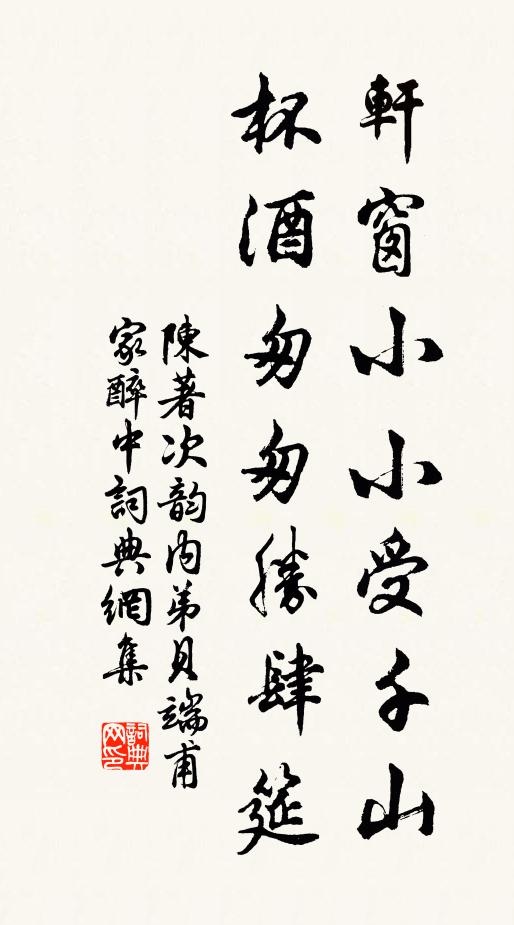 軒窗小小受千山
杯酒匆匆勝肆筵
陳著次韵內弟貝端甫
家醉中詞典網集
詞典網印